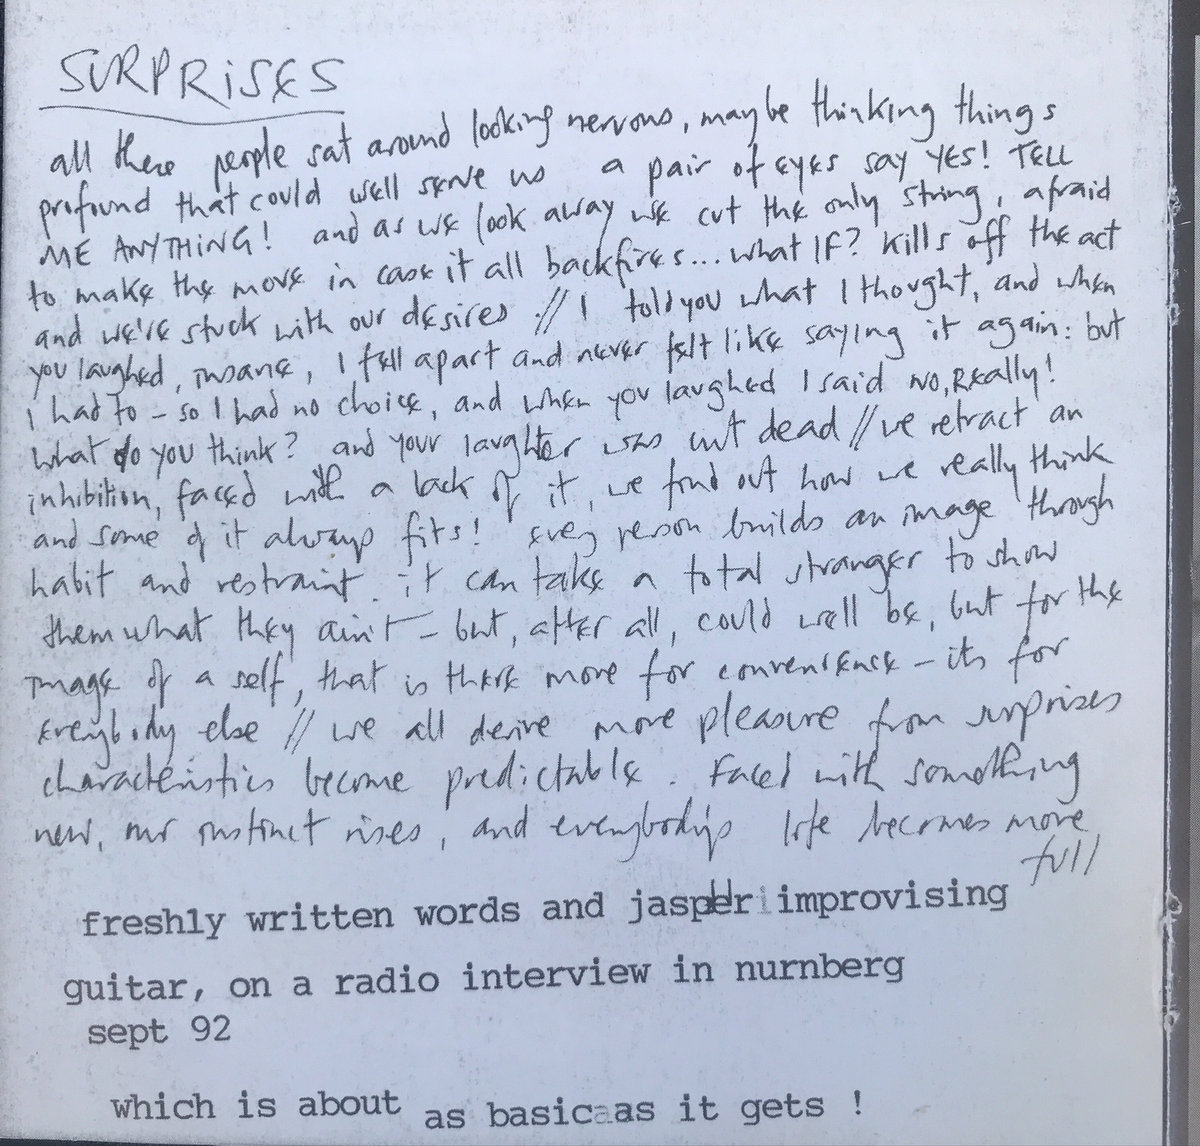 SURPRISES
all these people sat around looking nervous, maybe thinking things
profound that could well serve us a pair of eyes say YES! TELL
ME ANYTHING! and as we look away we cut the only string, afraid
to make the move in case it all backfires... what IF? kills off the act
and we're stuck with our desires // I told you what I thought, and when
you laughed, insane, I fell apart and never felt like saying it again: but
I had to - so I had no choice, and when you laughed I said NO, REALLY!
what do you think? and your laughter was cut dead // we retract an
inhibition, faced with a lack of it, we find out how we really think
and some of it always fits! every person builds an image through
habit and restraint. it can take a total stranger to show
them what they ain't - but, after all, could well be, but for the
image of a self, that is there more for convenience - its for
everybody else // we all derive more pleasure from surprises
characteristics become predictable. Faced with something
new, our instinct rises, and everybodys life becomes more
full
freshly written words and jasper improvising
guitar, on a radio interview in nurnberg
sept 92
which is about as basic as it gets !